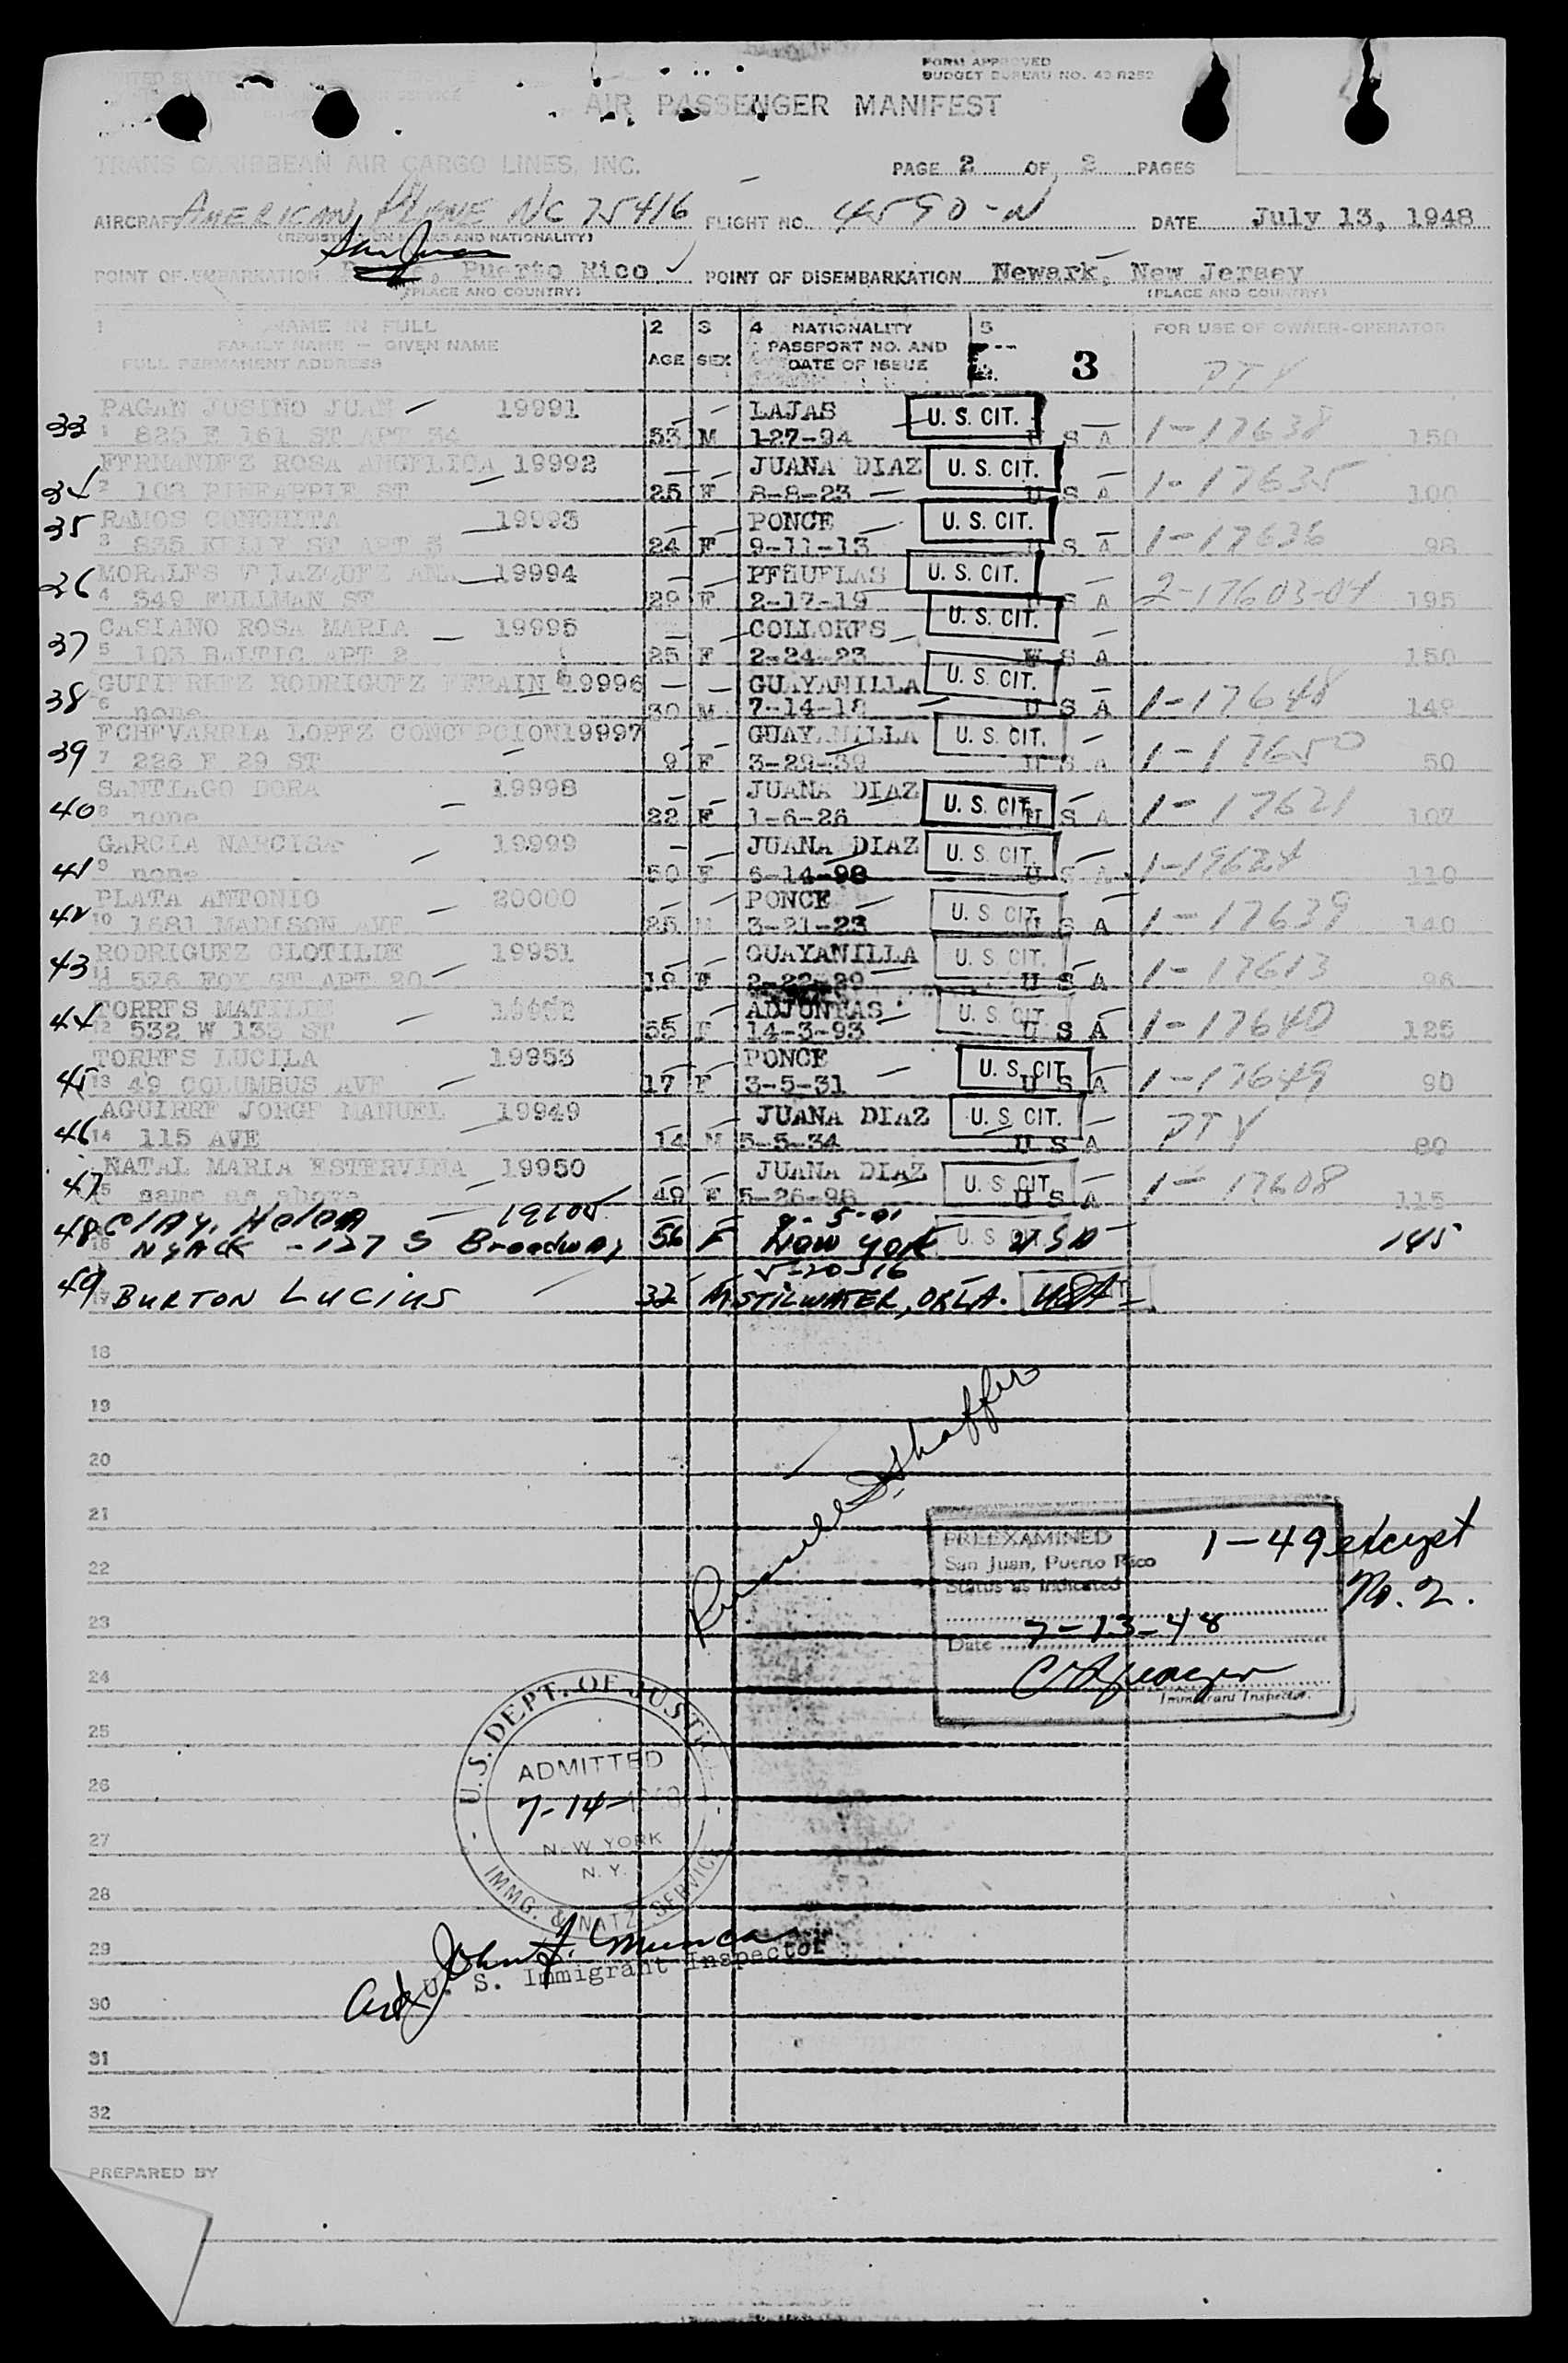 FORM APPROVED
BUDGET BUREAU NO. 43 R252
AIR PASSENGER MANIFEST
TRANS CARIBBEAN AIR CARGO LINES, INC.
PAGE 2 OF 2 PAGES
AIRCRAFT AMERICAN PLANE NC 75416 FLIGHT NO. 4590-N DATE July 13, 1948
(REGISTRATION MARKS AND NATIONALITY)
San Juan
POINT OF EMBARKATION Puerto Rico POINT OF DISEMBARKATION Newark, New Jersey
(PLACE AND COUNTRY) (PLACE AND COUNTRY)
1 NAME IN FULL 2 3 4 NATIONALITY 5 FOR USE OF OWNER-OPERATOR
FAMILY NAME — GIVEN NAME PASSPORT NO. AND
FULL PERMANENT ADDRESS AGE SEX DATE OF ISSUE 3 PTY
PAGAN JUSINO JUAN 19991 LAJAS U. S. CIT.
33 1 825 E 161 ST APT 34 53 M 1-27-94 U S A 1-17638 150
FERNANDEZ ROSA ANGELICA 19992 JUANA DIAZ U. S. CIT.
34 2 103 PINEAPPLE ST 25 F 8-8-23 U S A 1-17635 100
35 RAMOS CONCHITA 19993 PONCE U. S. CIT.
3 835 KELLY ST APT 3 24 F 9-11-13 U S A 1-17636 98
36 MORALES VELAZQUEZ ANA 19994 PEÑUELAS U. S. CIT.
4 349 FULLMAN ST 29 F 2-17-19 U S A 2-17603-04 195
37 CASIANO ROSA MARIA 19995 COLLORES U. S. CIT.
5 103 BALTIC APT 2 25 F 2-24-23 U S A 150
38 GUTIERREZ RODRIGUEZ EFRAIN 19996 GUAYANILLA U. S. CIT.
6 none 30 M 7-14-18 U S A 1-17648 148
39 ECHEVARRIA LOPEZ CONCEPCION 19997 GUAYANILLA U. S. CIT.
7 226 E 29 ST 9 F 3-29-39 U S A 1-17650 50
40 SANTIAGO DORA 19998 JUANA DIAZ U. S. CIT.
8 none 22 F 1-6-26 U S A 1-17621 107
GARCIA NARCISA 19999 JUANA DIAZ U. S. CIT.
41 9 none 50 F 6-14-98 U S A 1-19624 110
PLATA ANTONIO 20000 PONCE U. S. CIT.
42 10 1681 MADISON AVE 25 M 3-21-23 U S A 1-17639 140
RODRIGUEZ CLOTILDE 19951 GUAYANILLA U. S. CIT.
43 11 576 FOX ST APT 20 19 F 2-22-29 U S A 1-17613 96
TORRES MATILDE 19952 ADJUNTAS U. S. CIT.
44 12 532 W 133 ST 55 F 14-3-93 U S A 1-17640 125
TORRES LUCILA 19953 PONCE U. S. CIT.
45 13 49 COLUMBUS AVE 17 F 3-5-31 U S A 1-17649 90
AGUIRRE JORGE MANUEL 19949 JUANA DIAZ U. S. CIT.
46 14 115 AVE 14 M 5-5-34 U S A PTY 80
NATAL MARIA ESTERVINA 19950 JUANA DIAZ U. S. CIT.
47 15 same as above 49 F 5-26-98 U S A 1-17608 115
48 Clay, Helen
16 NYACK - 127 S Broadway 56 F New York U. S. CIT. USA 145
5-20-16
49 17 BURTON LUCIUS 32 M STILWATER, OKLA. USA
18
19
20
Russell D. Shaffer
21
PREEXAMINED 1-49 except
22 San Juan, Puerto Rico No. 2.
Status as Indicated
23
Date 7-13-48
24
Immigrant Inspector
25
U.S. DEPT. OF JUSTICE
26 ADMITTED
7-14-1948
27 NEW YORK
N. Y.
28
IMMG. & NATZ SERVICE
29 John J.
U. S. Immigrant Inspector
30
31
32
PREPARED BY